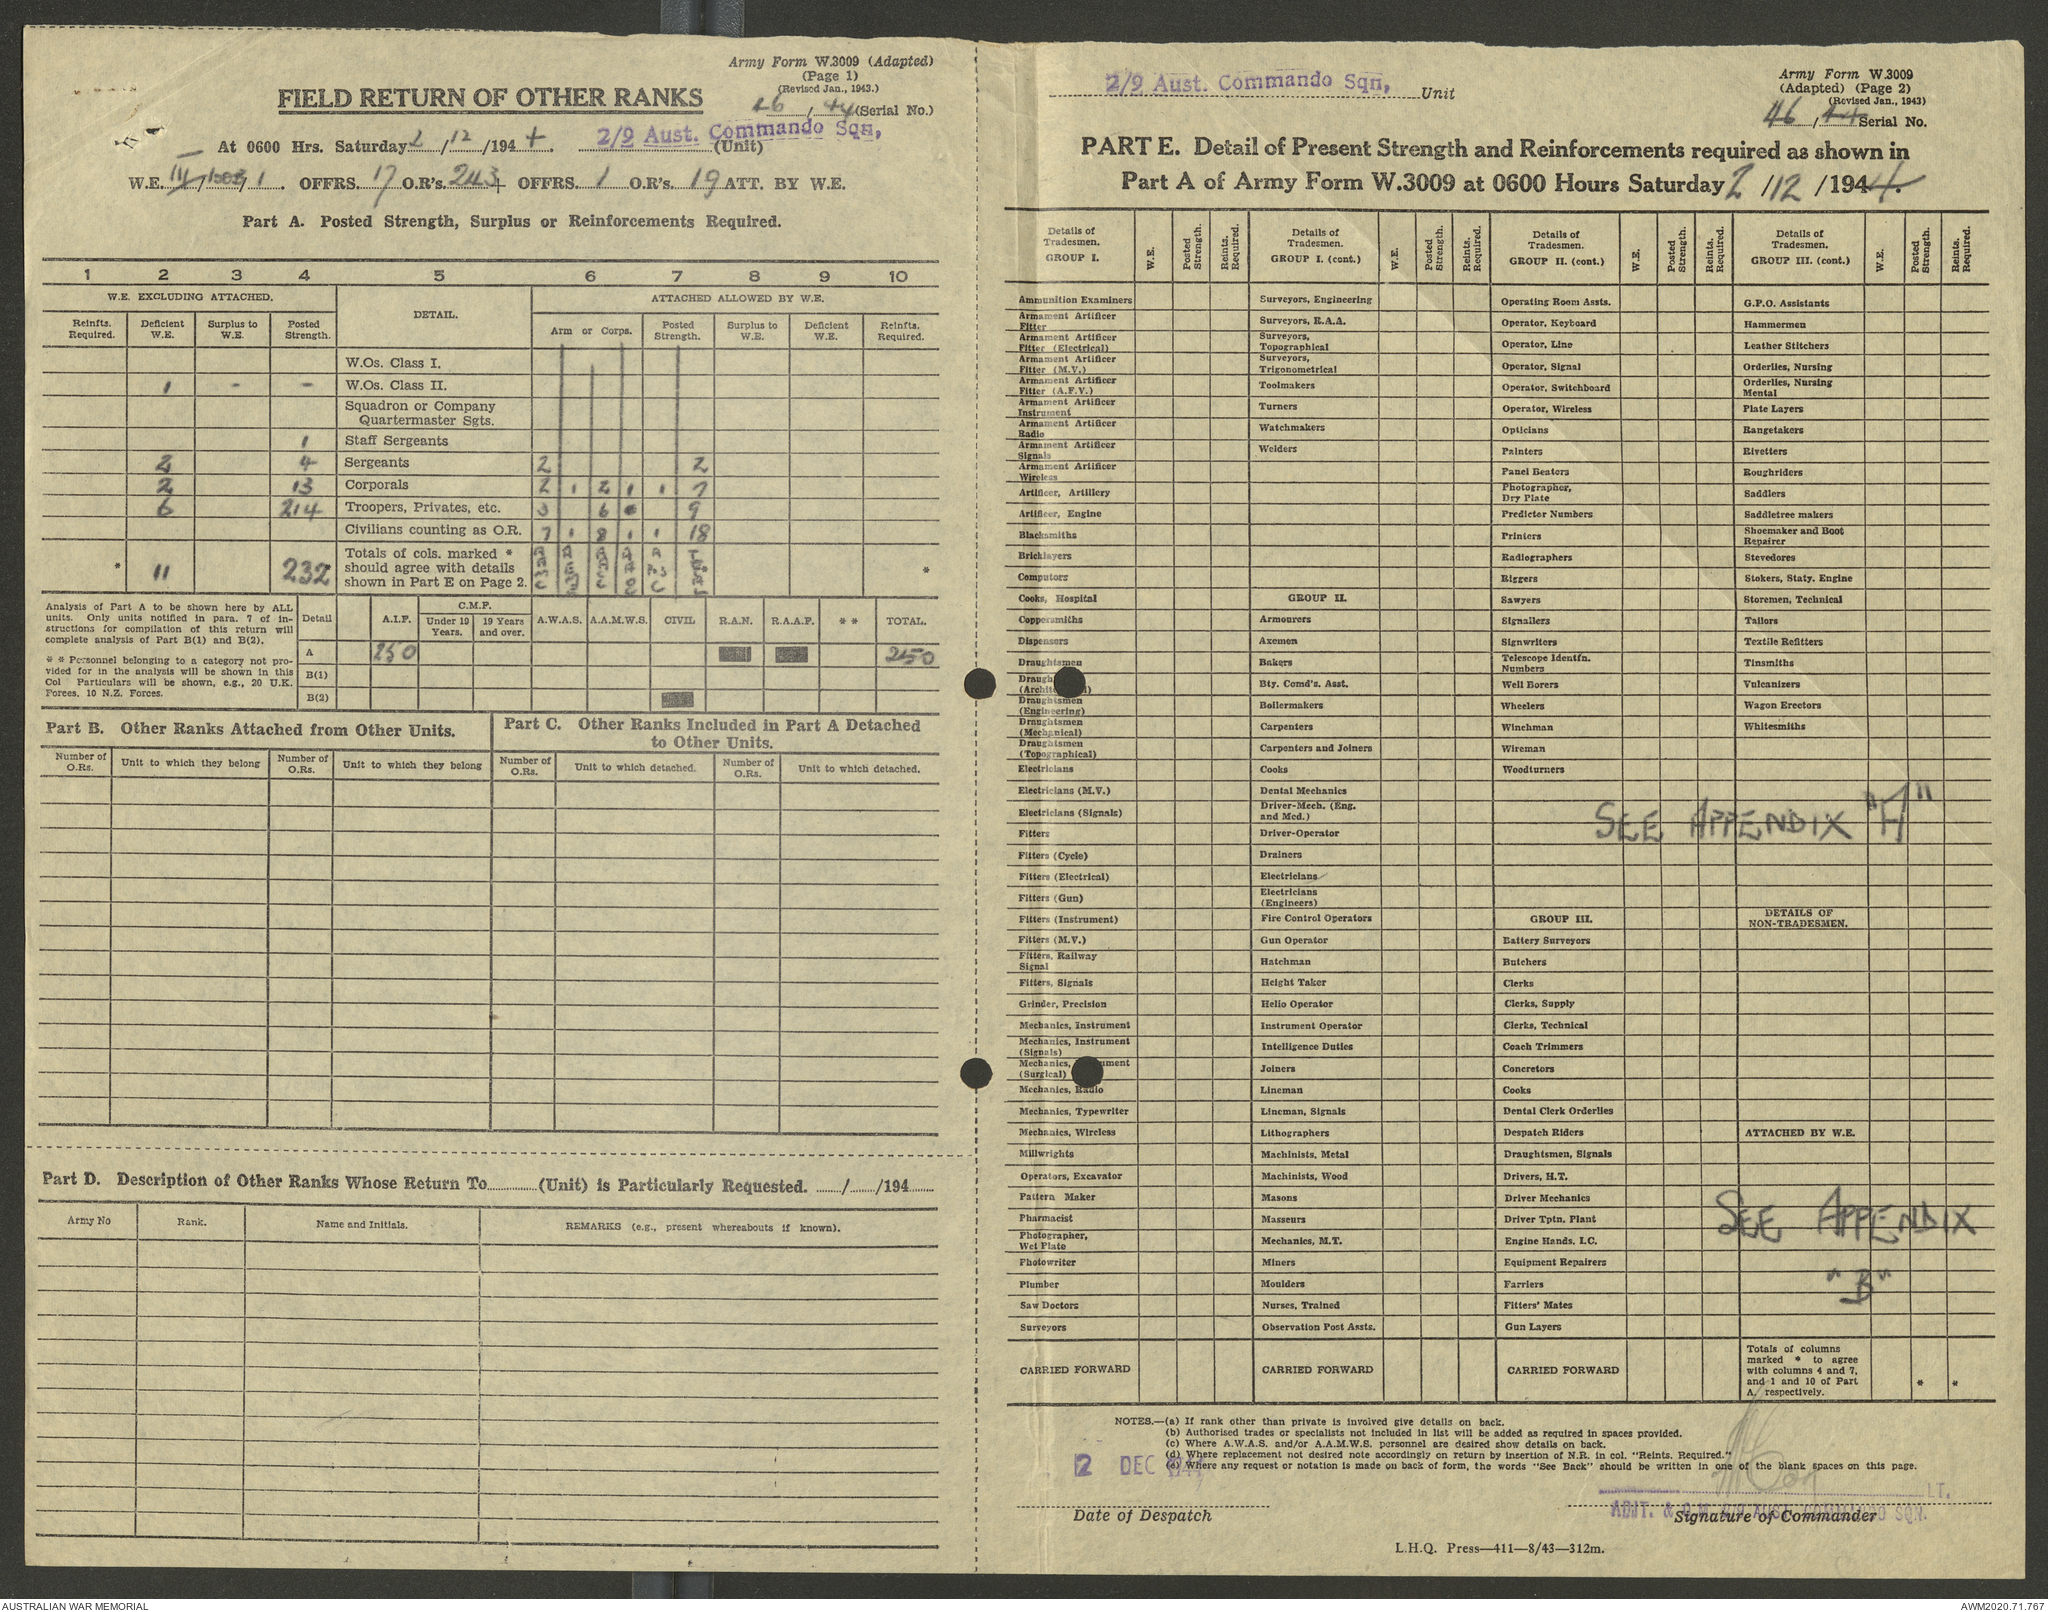 Army Form W.3009 (Adapted)
(Page 1)
(Revised Jan., 1943.)
FIELD RETURN OF OTHER RANKS
46 / 44 (Serial No.)
At 0600 Hrs. Saturday 2 / 12 / 1944. 2/9 Aust. Commando Sqn, (Unit)
W.E. III / / 1 . OFFRS. 17 O.R's. 243 + OFFRS. 1 O.R's. 19 ATT. BY W.E.
Part A. Posted Strength, Surplus or Reinforcements Required.
1 2 3 4 5 6 7 8 9 10
W.E. EXCLUDING ATTACHED. DETAIL. ATTACHED ALLOWED BY W.E.
Reinfts. Required. Deficient W.E. Surplus to W.E. Posted Strength. Arm or Corps. Posted Strength. Surplus to W.E. Deficient W.E. Reinfts. Required.
W.Os. Class I.
1 - - W.Os. Class II.
Squadron or Company
Quartermaster Sgts.
1 Staff Sergeants
2 4 Sergeants 2 2
2 13 Corporals 2 1 2 1 1 7
6 214 Troopers, Privates, etc. 3 6 9
Civilians counting as O.R. 7 1 8 1 1 18
* 11 232 Totals of cols. marked *
should agree with details
shown in Part E on Page 2. * *
Analysis of Part A to be shown here by ALL
units. Only units notified in para. 7 of in-
structions for compilation of this return will
complete analysis of Part B(1) and B(2).
* * Personnel belonging to a category not pro-
vided for in the analysis will be shown in this
Col Particulars will be shown, e.g., 20 U.K.
Forces, 10 N.Z. Forces.
Detail A.I.F. C.M.F. Under 19 Years. 19 Years and over. A.W.A.S. A.A.M.W.S. CIVIL R.A.N. R.A.A.F. * * TOTAL.
A 250 250
B(1)
B(2)
Part B. Other Ranks Attached from Other Units.
Part C. Other Ranks Included in Part A Detached
to Other Units.
Number of O.Rs. Unit to which they belong Number of O.Rs. Unit to which they belong Number of O.Rs. Unit to which detached. Number of O.Rs. Unit to which detached.
Part D. Description of Other Ranks Whose Return To (Unit) is Particularly Requested. / /194
Army No Rank. Name and Initials. REMARKS (e.g., present whereabouts if known).
2/9 Aust. Commando Sqn, Unit
Army Form W.3009
(Adapted) (Page 2)
(Revised Jan., 1943)
46 / 44 Serial No.
PART E. Detail of Present Strength and Reinforcements required as shown in
Part A of Army Form W.3009 at 0600 Hours Saturday 2 / 12 / 1944.
Details of Tradesmen. GROUP I. W.E. Posted Strength. Reints. Required.
Details of Tradesmen. GROUP I. (cont.) W.E. Posted Strength. Reints. Required.
Details of Tradesmen. GROUP II. (cont.) W.E. Posted Strength. Reints. Required.
Details of Tradesmen. GROUP III. (cont.) W.E. Posted Strength. Reints. Required.
Ammunition Examiners
Armament Artificer Fitter
Armament Artificer Fitter (Electrical)
Armament Artificer Fitter (M.V.)
Armament Artificer Fitter (A.F.V.)
Armament Artificer Instrument
Armament Artificer Radio
Armament Artificer Signals
Armament Artificer Wireless
Artificer, Artillery
Artificer, Engine
Blacksmiths
Bricklayers
Computors
Cooks, Hospital
Coppersmiths
Dispensers
Draughtsmen
Draughtsmen (Architectural)
Draughtsmen (Engineering)
Draughtsmen (Mechanical)
Draughtsmen (Topographical)
Electricians
Electricians (M.V.)
Electricians (Signals)
Fitters
Fitters (Cycle)
Fitters (Electrical)
Fitters (Gun)
Fitters (Instrument)
Fitters (M.V.)
Fitters, Railway Signal
Fitters, Signals
Grinder, Precision
Mechanics, Instrument
Mechanics, Instrument (Signals)
Mechanics, Instrument (Surgical)
Mechanics, Radio
Mechanics, Typewriter
Mechanics, Wireless
Millwrights
Operators, Excavator
Pattern Maker
Pharmacist
Photographer, Wet Plate
Photowriter
Plumber
Saw Doctors
Surveyors
CARRIED FORWARD
Surveyors, Engineering
Surveyors, R.A.A.
Surveyors, Topographical
Surveyors, Trigonometrical
Toolmakers
Turners
Watchmakers
Welders
GROUP II.
Armourers
Axemen
Bakers
Bty. Comd's. Asst.
Boilermakers
Carpenters
Carpenters and Joiners
Cooks
Dental Mechanics
Driver-Mech. (Eng. and Med.)
Driver-Operator
Drainers
Electricians
Electricians (Engineers)
Fire Control Operators
Gun Operator
Hatchman
Height Taker
Helio Operator
Instrument Operator
Intelligence Duties
Joiners
Lineman
Lineman, Signals
Lithographers
Machinists, Metal
Machinists, Wood
Masons
Masseurs
Mechanics, M.T.
Miners
Moulders
Nurses, Trained
Observation Post Assts.
CARRIED FORWARD
Operating Room Assts.
Operator, Keyboard
Operator, Line
Operator, Signal
Operator, Switchboard
Operator, Wireless
Opticians
Painters
Panel Beaters
Photographer, Dry Plate
Predictor Numbers
Printers
Radiographers
Riggers
Sawyers
Signallers
Signwriters
Telescope Identfn. Numbers
Well Borers
Wheelers
Winchman
Wireman
Woodturners
GROUP III.
Battery Surveyors
Butchers
Clerks
Clerks, Supply
Clerks, Technical
Coach Trimmers
Concretors
Cooks
Dental Clerk Orderlies
Despatch Riders
Draughtsmen, Signals
Drivers, H.T.
Driver Mechanics
Driver Tptn. Plant
Engine Hands, I.C.
Equipment Repairers
Farriers
Fitters' Mates
Gun Layers
CARRIED FORWARD
G.P.O. Assistants
Hammermen
Leather Stitchers
Orderlies, Nursing
Orderlies, Nursing Mental
Plate Layers
Rangetakers
Rivetters
Roughriders
Saddlers
Saddletree makers
Shoemaker and Boot Repairer
Stevedores
Stokers, Staty. Engine
Storemen, Technical
Tailors
Textile Refitters
Tinsmiths
Vulcanizers
Wagon Erectors
Whitesmiths
SEE APPENDIX "A"
DETAILS OF NON-TRADESMEN.
ATTACHED BY W.E.
SEE APPENDIX
"B"
Totals of columns
marked * to agree
with columns 4 and 7,
and 1 and 10 of Part
A, respectively. * *
NOTES.—(a) If rank other than private is involved give details on back.
(b) Authorised trades or specialists not included in list will be added as required in spaces provided.
(c) Where A.W.A.S. and/or A.A.M.W.S. personnel are desired show details on back.
(d) Where replacement not desired note accordingly on return by insertion of N.R. in col. "Reints. Required."
(e) Where any request or notation is made on back of form, the words "See Back" should be written in one of the blank spaces on this page.
2 DEC 1944
LT.
ADJT. & Q.M. 2/9 AUST. COMMANDO SQN.
Date of Despatch Signature of Commander
L.H.Q. Press—411—8/43—312m.
AUSTRALIAN WAR MEMORIAL AWM2020.71.767